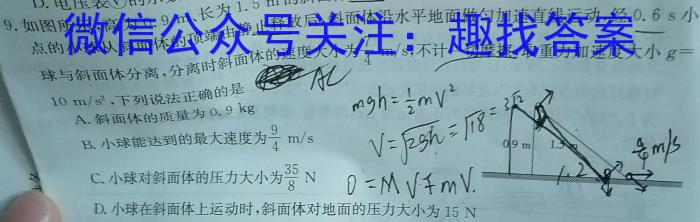 D.电压表
微信公众号关注：趣找答案
9.如图所 高为 .9 m、长为 1.5 m的斜面体 斜面体沿水平地面做匀加速直线运动,经0.6 s小
球与斜面体分离,分离时斜面体的速度大小为 m/s,不计 重力加速度大小 g=
10 m/s²,下列说法正确的是
AC
A.斜面体的质量为0.9 kg
B.小球能达到的最大速度为9/4 m/s
C.小球对斜面体的压力大小为35/8 N
D.小球在斜面体上运动时,斜面体对地面的压力大小为 15 N
mgh=½mV²
V=√2gh=√18=3√2
0=MV
mV.
0.9 m
1.5
1.2
9/4 m/s